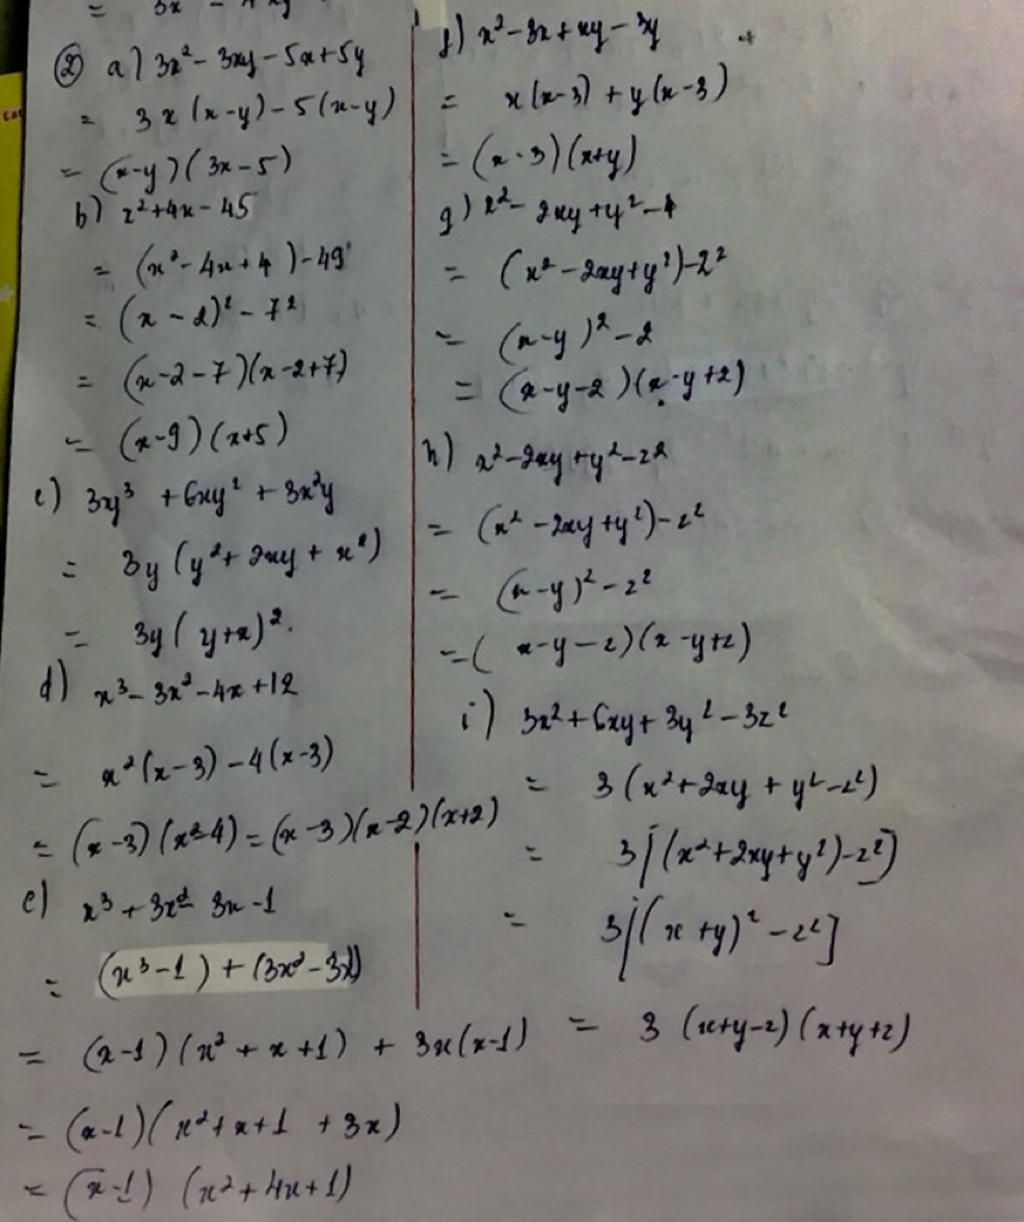 = 3x -
② a) 3x² - 3xy - 5x + 5y
= 3x(x-y) - 5(x-y)
= (x-y)(3x-5)
b) x² + 4x - 45
= (x² - 4x + 4) - 49
= (x - 2)² - 7²
= (x-2-7)(x-2+7)
= (x-9)(x+5)
c) 3y³ + 6xy² + 3x²y
= 3y(y² + 2xy + x²)
= 3y(y+x)².
d) x³ - 3x² - 4x + 12
= x²(x-3) - 4(x-3)
= (x-3)(x²-4) = (x-3)(x-2)(x+2)
e) x³ + 3x² - 3x - 1
= (x³-1) + (3x² - 3x)
= (x-1)(x² + x + 1) + 3x(x-1)
= (x-1)(x² + x + 1 + 3x)
= (x-1) (x² + 4x + 1)
f) x² - 3x + xy - 3y
= x(x-3) + y(x-3)
= (x-3)(x+y)
g) x² - 2xy + y² - 4
= (x² - 2xy + y²) - 2²
= (x-y)² - 2
= (x-y-2)(x-y+2)
h) x² - 2xy + y² - z²
= (x² - 2xy + y²) - z²
= (x-y)² - z²
= (x-y-z)(x-y+z)
i) 3x² + 6xy + 3y² - 3z²
= 3(x² + 2xy + y² - z²)
= 3[(x² + 2xy + y²) - z²]
= 3[(x+y)² - z²]
= 3 (x+y-z)(x+y+z)